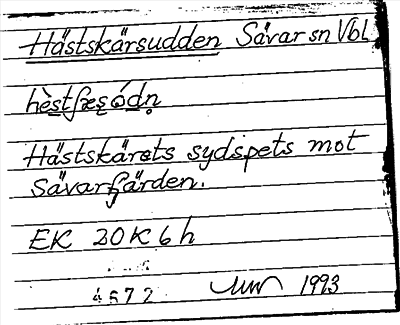 Hästskärsudden Sävar sn Vbl
hèstʃæʂódṇ
Hästskärets sydspets mot
Sävarfjärden.
EK 20K6h
4672 1993